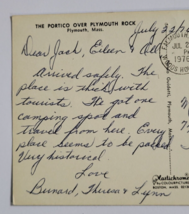 THE PORTICO OVER PLYMOUTH ROCK
Plymouth, Mass.
July 22/76
Dear Jack, Eileen & All
Arrived safely. The
place is thick with
tourists. We got one
camping spot and
travel from here. Every
place seems to be packed.
Very historical.
Love
Bernard, Theresa & Lynn
JUL 2
1976
Plastichrome